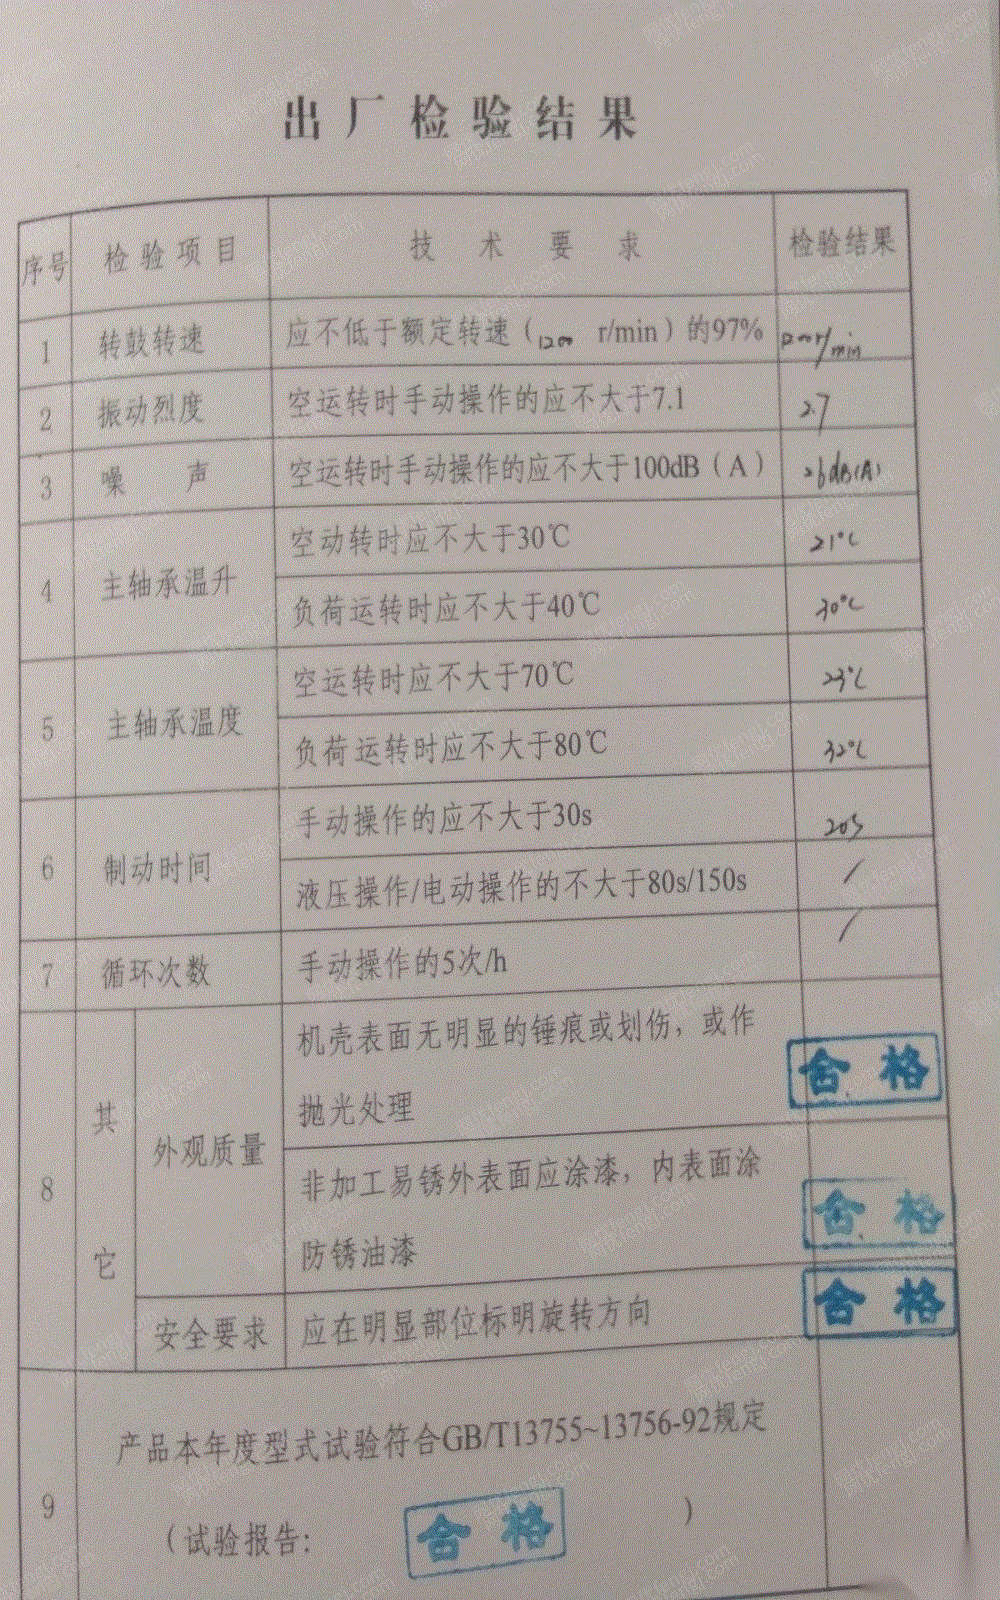 出厂检验结果
序号 检验项目 技术要求 检验结果
1 转鼓转速 应不低于额定转速（1200 r/min）的97% 1200r/min
2 振动烈度 空运转时手动操作的应不大于7.1 27
3 噪声 空运转时手动操作的应不大于100dB（A） 26dB(A)
4 主轴承温升 空动转时应不大于30℃ 21℃
负荷运转时应不大于40℃ 30℃
5 主轴承温度 空运转时应不大于70℃ 23℃
负荷运转时应不大于80℃ 32℃
6 制动时间 手动操作的应不大于30s 20s
液压操作/电动操作的不大于80s/150s /
7 循环次数 手动操作的5次/h /
8 其它 外观质量 机壳表面无明显的锤痕或划伤，或作
抛光处理 合格
非加工易锈外表面应涂漆，内表面涂
防锈油漆 合格
安全要求 应在明显部位标明旋转方向 合格
9 产品本年度型式试验符合GB/T13755~13756-92规定
（试验报告: 合格 ）